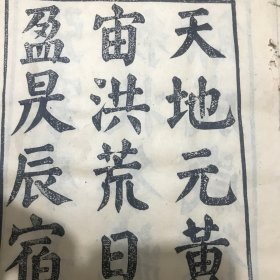 天地元黄
宙洪荒日
盈昃辰宿